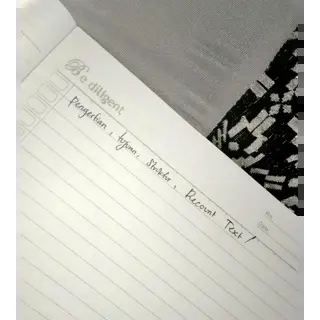 Be diligent
Pengertian, tujuan, struktur, Recount Text!